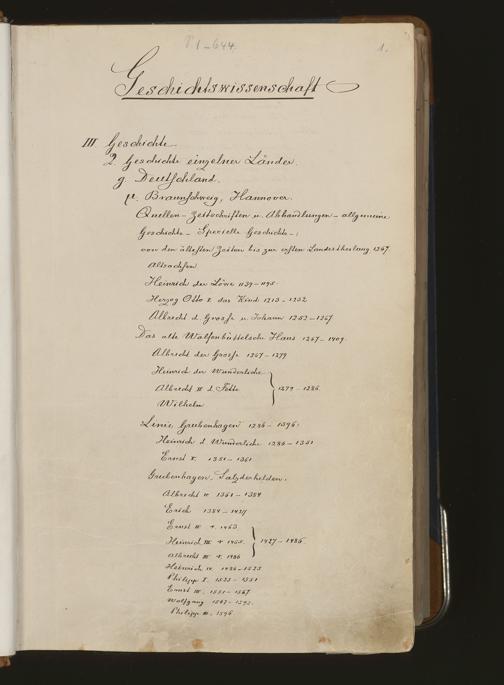 P. 1-644.
1.
Geschichtswissenschaft
III Geschichte
2. Geschichte einzelner Länder.
g. Deutschland.
µ. Braunschweig, Hannover.
Quellen-Zeitschriften u. Abhandlungen-allgemeine
Geschichte-Specielle Geschichte-:
von den ältesten Zeiten bis zur ersten Landestheilung 1267
Altsachsen
Heinrich der Löwe 1139-1195
Herzog Otto I. das Kind 1213-1252
Albrecht d. Grosse u. Johann 1252-1267
Das alte Wolfenbüttelsche Haus 1267-1409.
Albrecht der Grosse 1267-1279
Heinrich der Wunderliche
Albrecht II d. Fette 1279-1286
Wilhelm
Linie Grubenhagen 1286-1596:
Heinrich d. Wunderliche 1286-1361
Ernst I. 1361-1361
Grubenhagen, Salzderhelden.
Albrecht II 1361-1384
Erich 1384-1427
Ernst III +. 1463
Heinrich III + 1465. 1427-1486
Albrecht III +. 1486
Heinrich IV. 1486-1525
Philipp I. 1525-1551
Ernst III. 1551-1567
Wolfgang 1567-1595.
Philipp II. 1596.